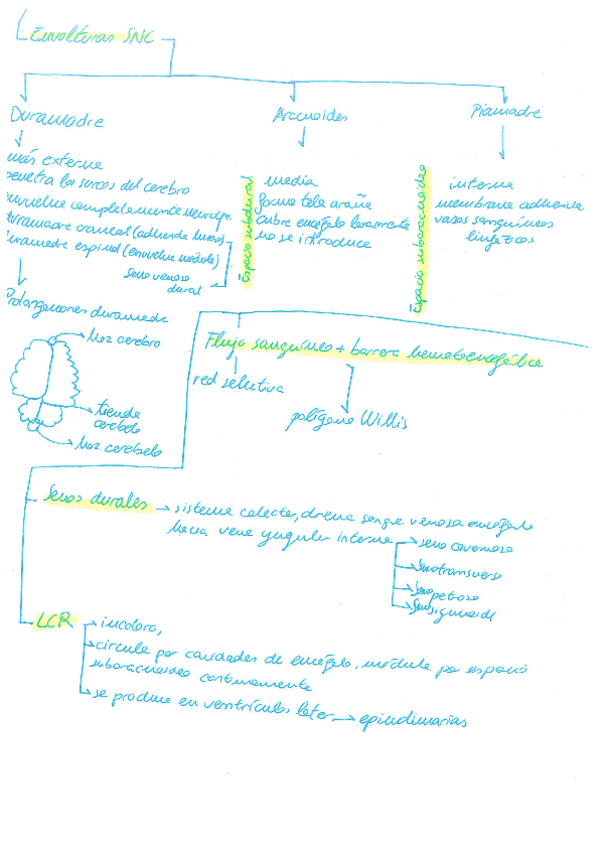 Envolturas SNC
Duramadre
más externa
penetra los surcos del cerebro
envuelve completamente neuroeje
duramadre craneal (adherida hueso)
duramadre espinal (envuelve médula)
seno venoso
dural
Prolongaciones duramadre
hoz cerebro
tienda
cerebelo
hoz cerebelo
Aracnoides
Espacio subdural
media
forma tela araña
cubre encéfalo levemente
no se introduce
Piamadre
Espacio subaracnoideo
interna
membrana adherida
vasos sanguíneos
linfáticos
Flujo sanguíneo + barrera hematoencefálica
red selectiva
polígono Willis
Senos durales → sistema colector, drena sangre venosa encéfalo
hacia vena yugular interna
seno cavernoso
Seno transverso
Seno petroso
Seno sigmoide
LCR
incoloro,
circula por cavidades de encéfalo, médula por espacio
subaracnoideo continuamente
se produce en ventrículos later → ependimarias